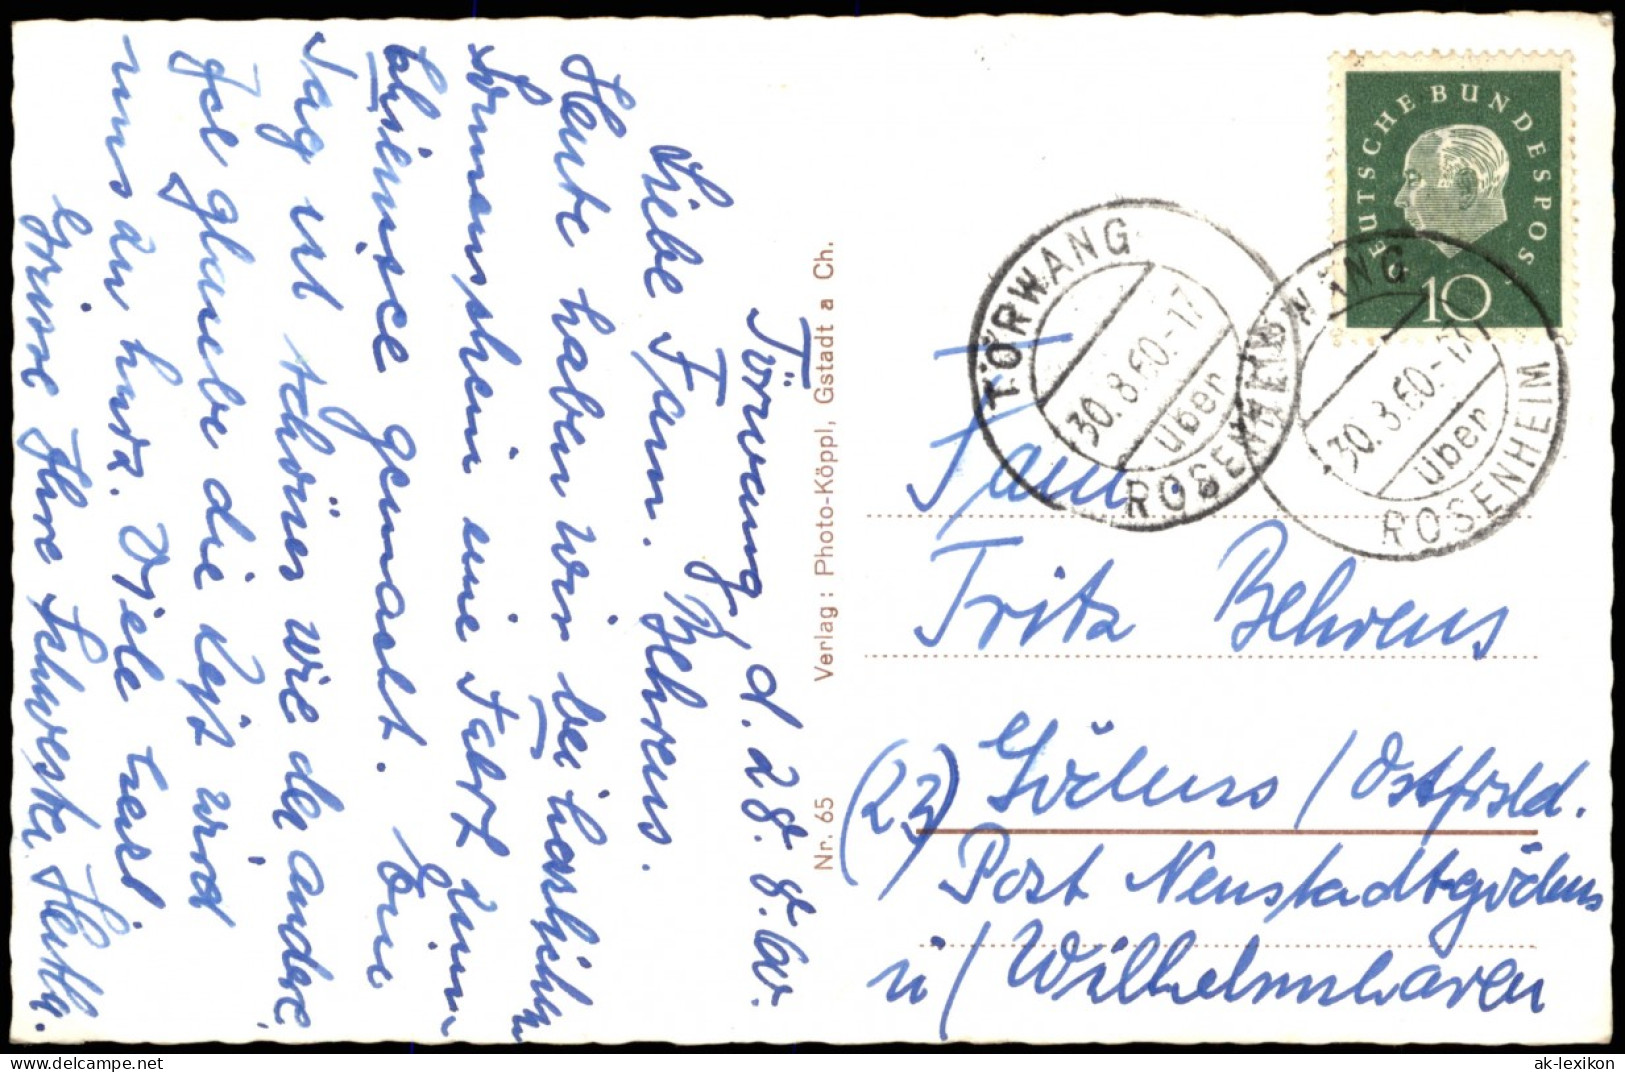 Törwang, d. 28. 8. 60.
Liebe Fam. Behrens.
Heute haben wir bei herrlichem
Sonnenschein eine Fahrt zum
Chiemsee gemacht. Ein
Tag ist schöner wie der andere.
Ich glaube die Zeit wird
uns zu kurz. Viele herzl.
Grüsse Ihre Schwester Herta.
Verlag: Photo-Köppl, Gstadt a Ch.
Nr. 65
DEUTSCHE BUNDESPOST
10
TÖRWANG
30.8.60.-17
über
ROSENHEIM
TÖRWANG
30.8.60-17
über
ROSENHEIM
Fam.
Fritz Behrens
(23) Gödens / Ostfrsld.
Post Neustadtgödens
ü/ Wilhelmshaven
www.delcampe.net
ak-lexikon